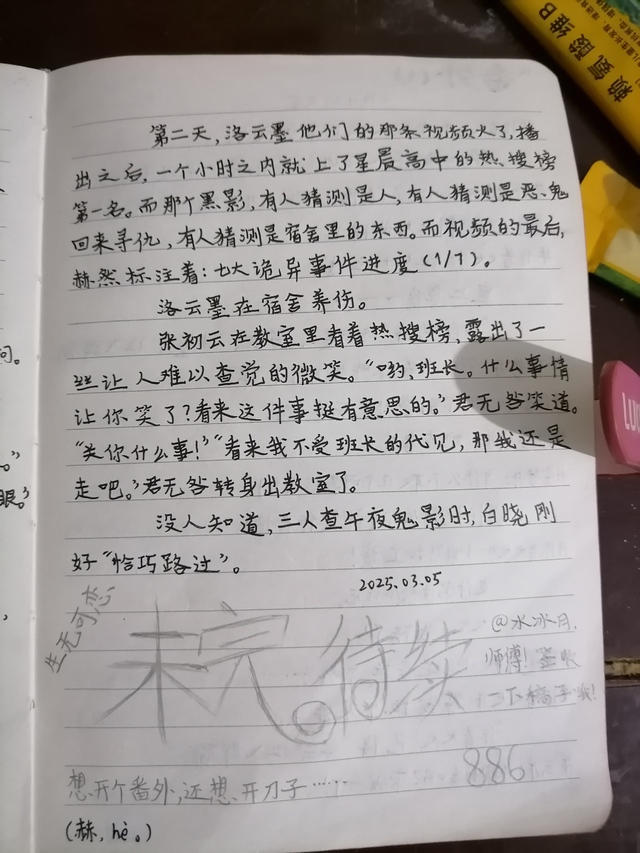 赖氨酸维B
第二天，洛云墨他们的那条视频火了，播
出之后，一个小时之内就上了星晨高中的热搜榜
第一名。而那个黑影，有人猜测是人，有人猜测是恶鬼
回来寻仇，有人猜测是宿舍里的东西。而视频的最后，
赫然标注着：七大诡异事件进度（1/7）。
洛云墨在宿舍养伤。
张初云在教室里看着热搜榜，露出了一
丝让人难以查觉的微笑。“哟，班长。什么事情
让你笑了？看来这件事挺有意思的。”君无咎笑道。
“关你什么事！”“看来我不受班长的代见，那我还是
走吧。”君无咎转身出教室了。
没人知道，三人查午夜鬼影时，白晓刚
好“恰巧路过”。
2025.03.05
生无可恋
未完。待续
@水冰月，
师傅！签收
一下稿子哦！
886
想开个番外，还想开刀子……
（赫，hè。）
问。
。”
眼。”
LU